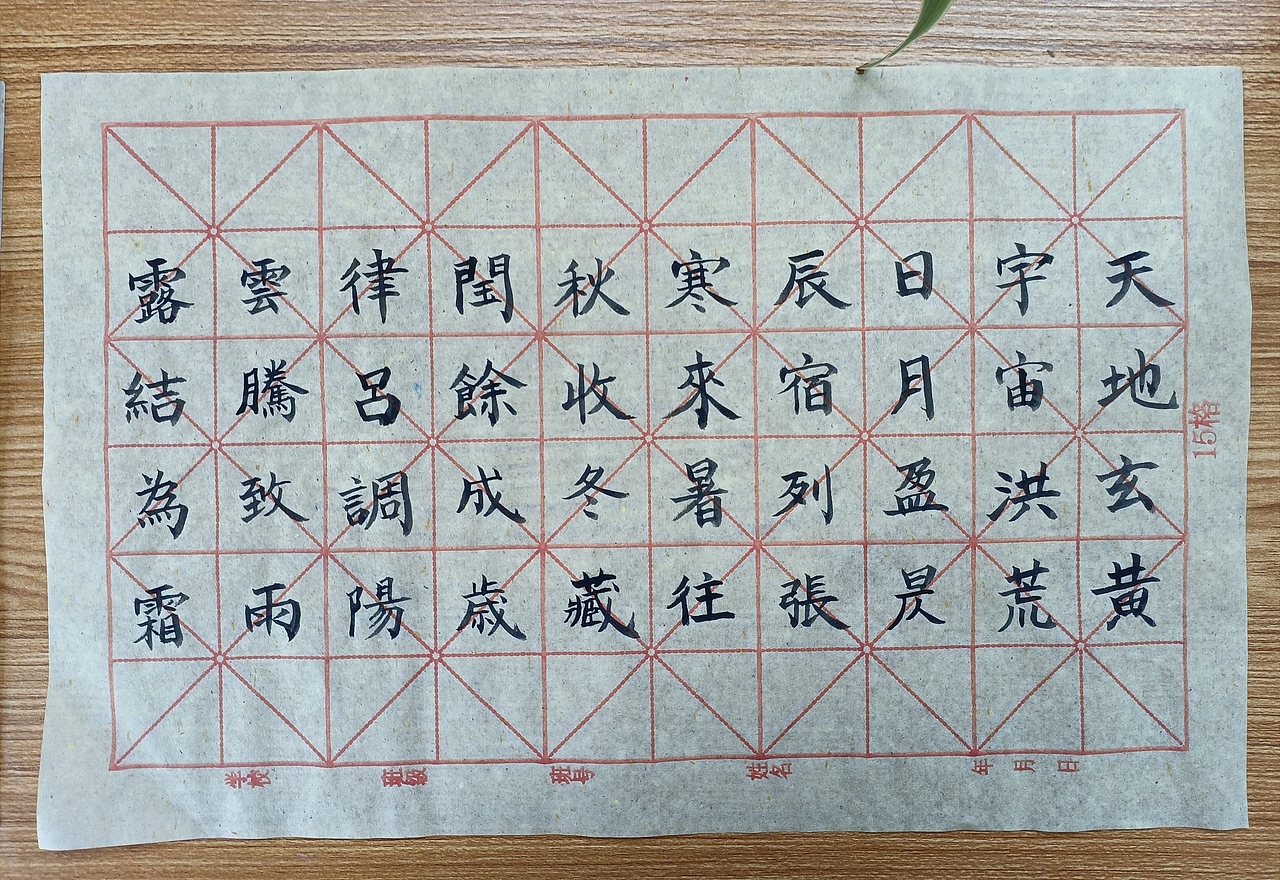 天地玄黄
宇宙洪荒
日月盈昃
辰宿列張
寒來暑往
秋收冬藏
閏餘成歳
律呂調陽
雲騰致雨
露結為霜
15格
学校
班级
班号
姓名
年 月 日